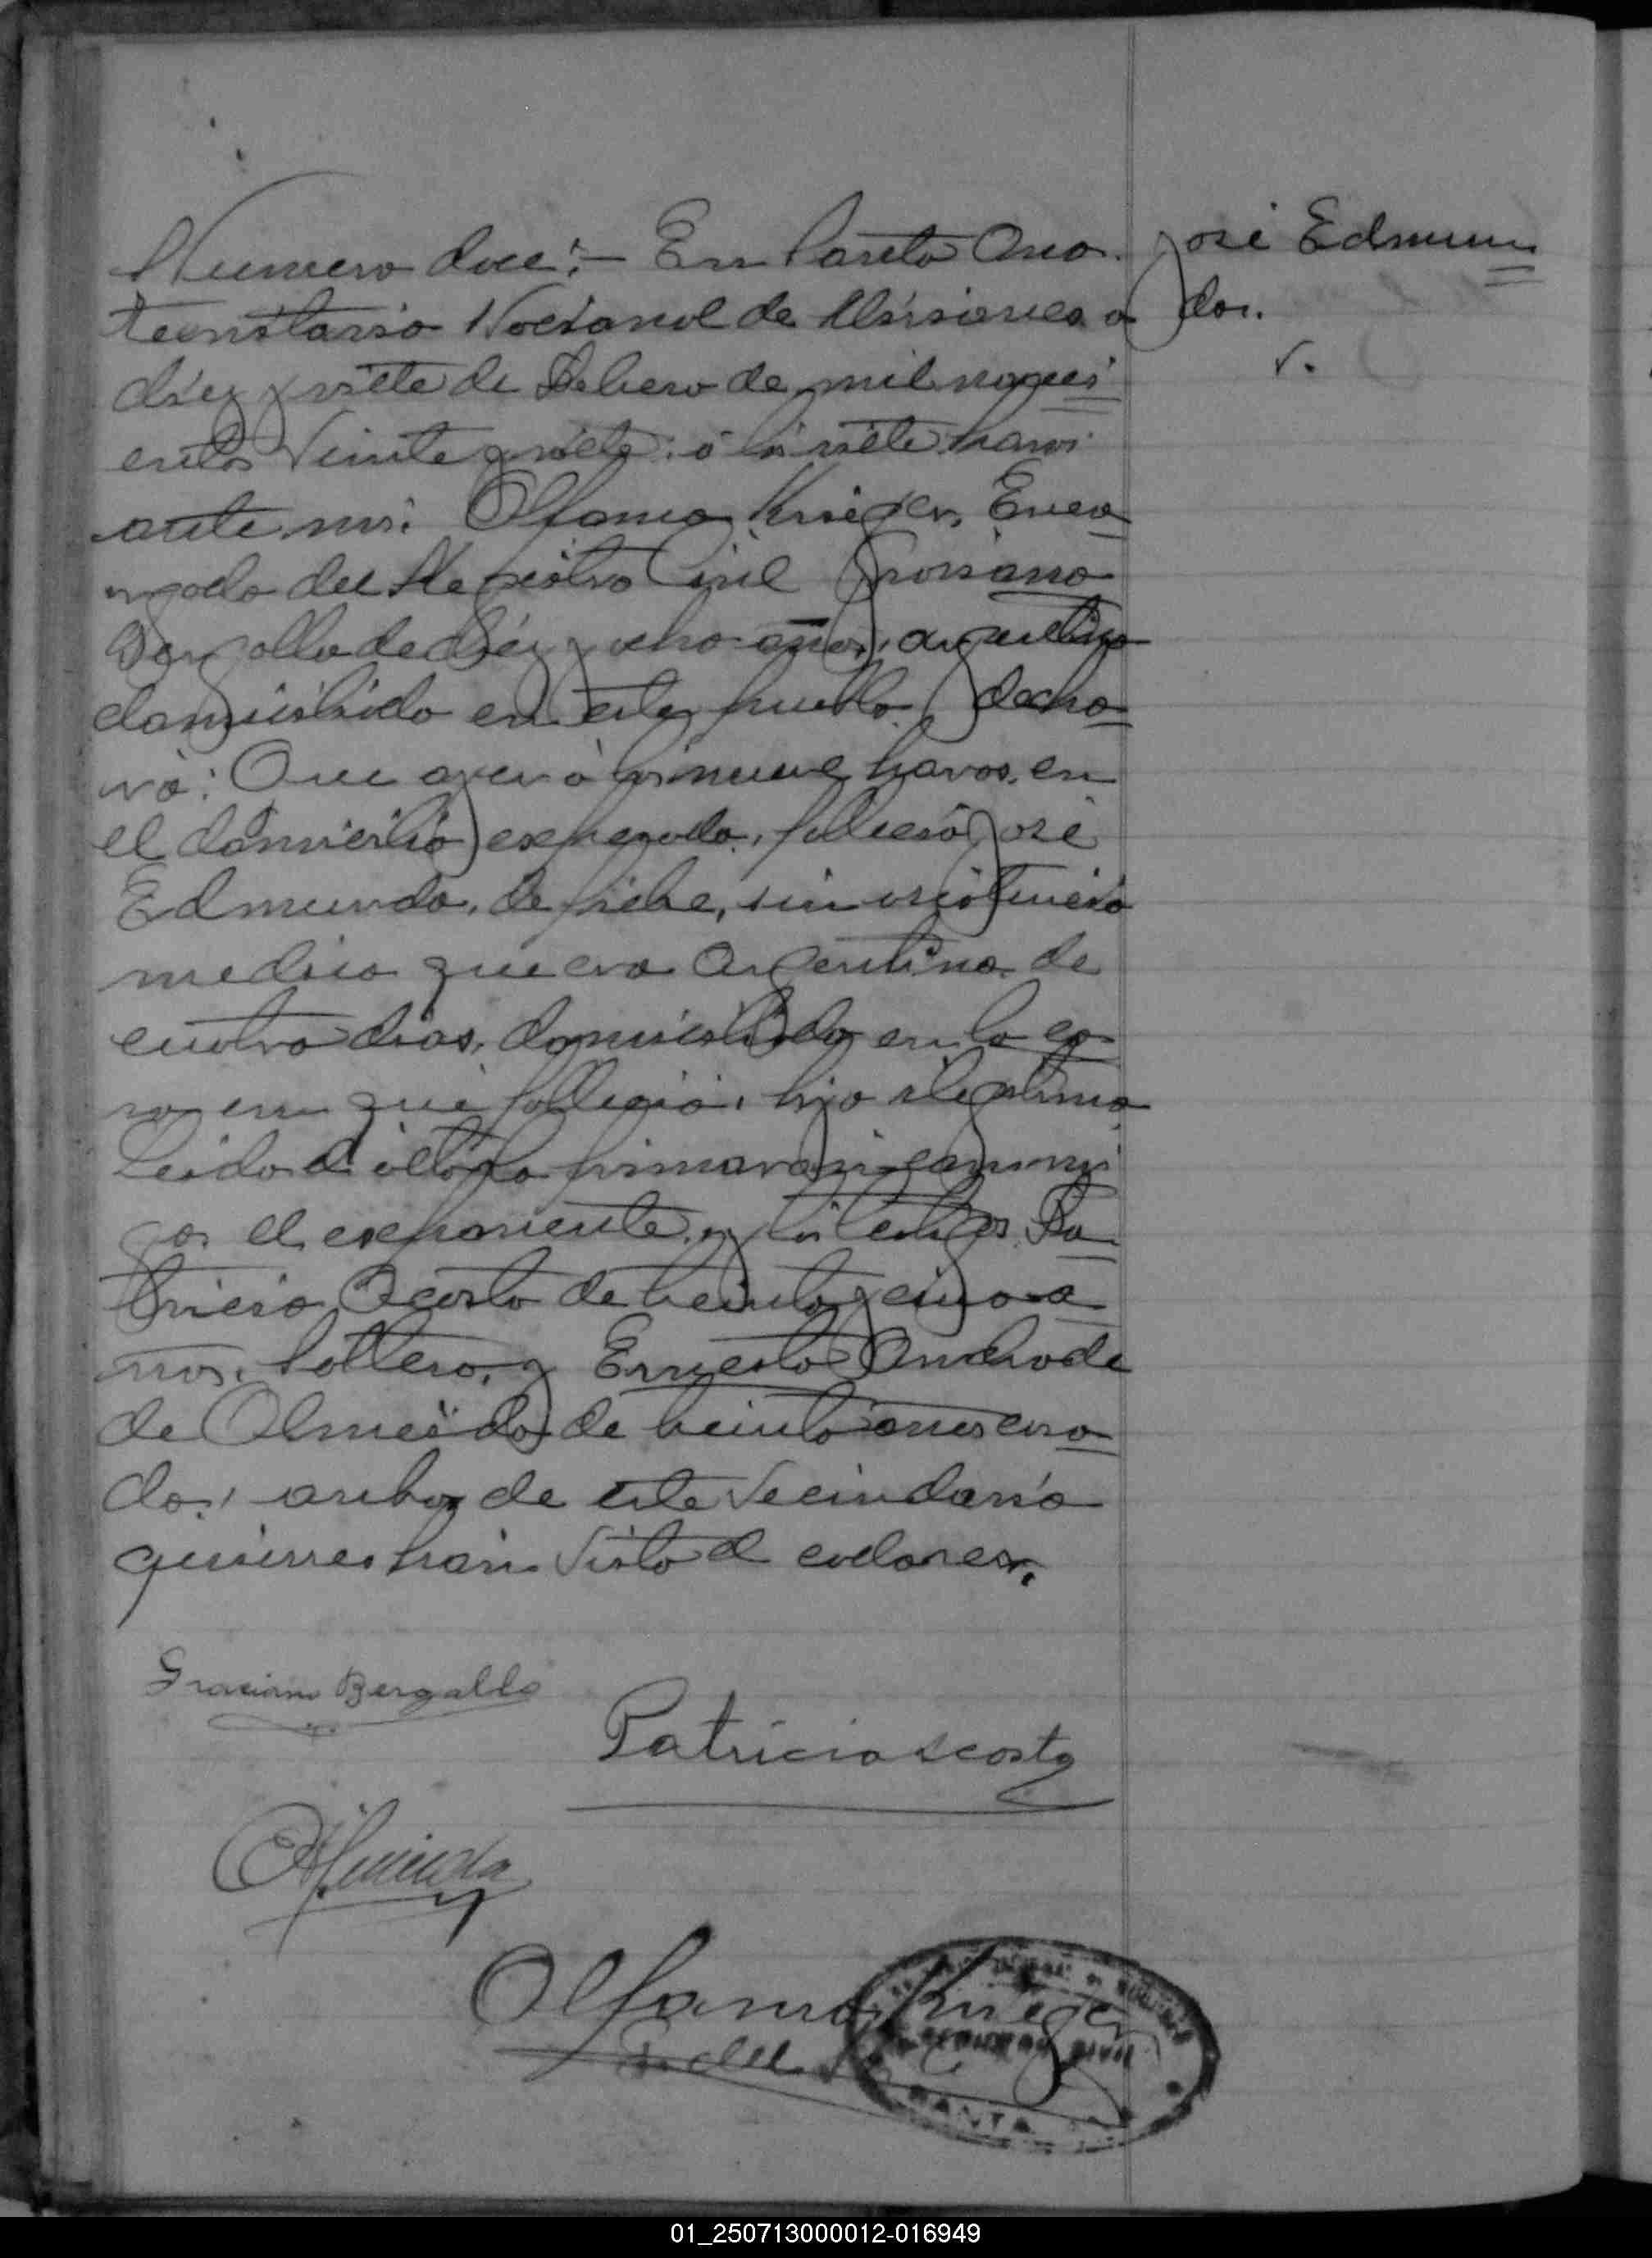 Numero doce:- En Santa Ana
José Edmun
territorio Nacional de Misiones a
do.
diez y siete de Febrero de mil noveci
entos veinte y siete: á las siete horas
ante mi: Olfania Krieger, Enca
rgado del Registro Civil Grasiano
Bergallo de diez y ocho años, argentino
domiciliado en este pueblo, decla
ró: Que ayer á las nueve horas, en
el domicilio expresado, fallecio José
Edmundo, de fiebre, sin asistencia
medica que era Argentino de
cuatro dias, domiciliado en la ca
sa en que fallecio, hijo ilegitimo
Leida el acta la firmaron conmi
go el exponente, y los testigos Pa
tricio Acosta de veinte y cinco a
ños, soltero, y Ernesto Andrade
de Almeida de veinte años casa
do, ambos de este vecindario
quienes han visto el cadaver.
Grasiano Bergallo
Patricio Acosta
EAlmeida
Krieger
REGISTRO CIVIL
SANTA
01_250713000012-016949